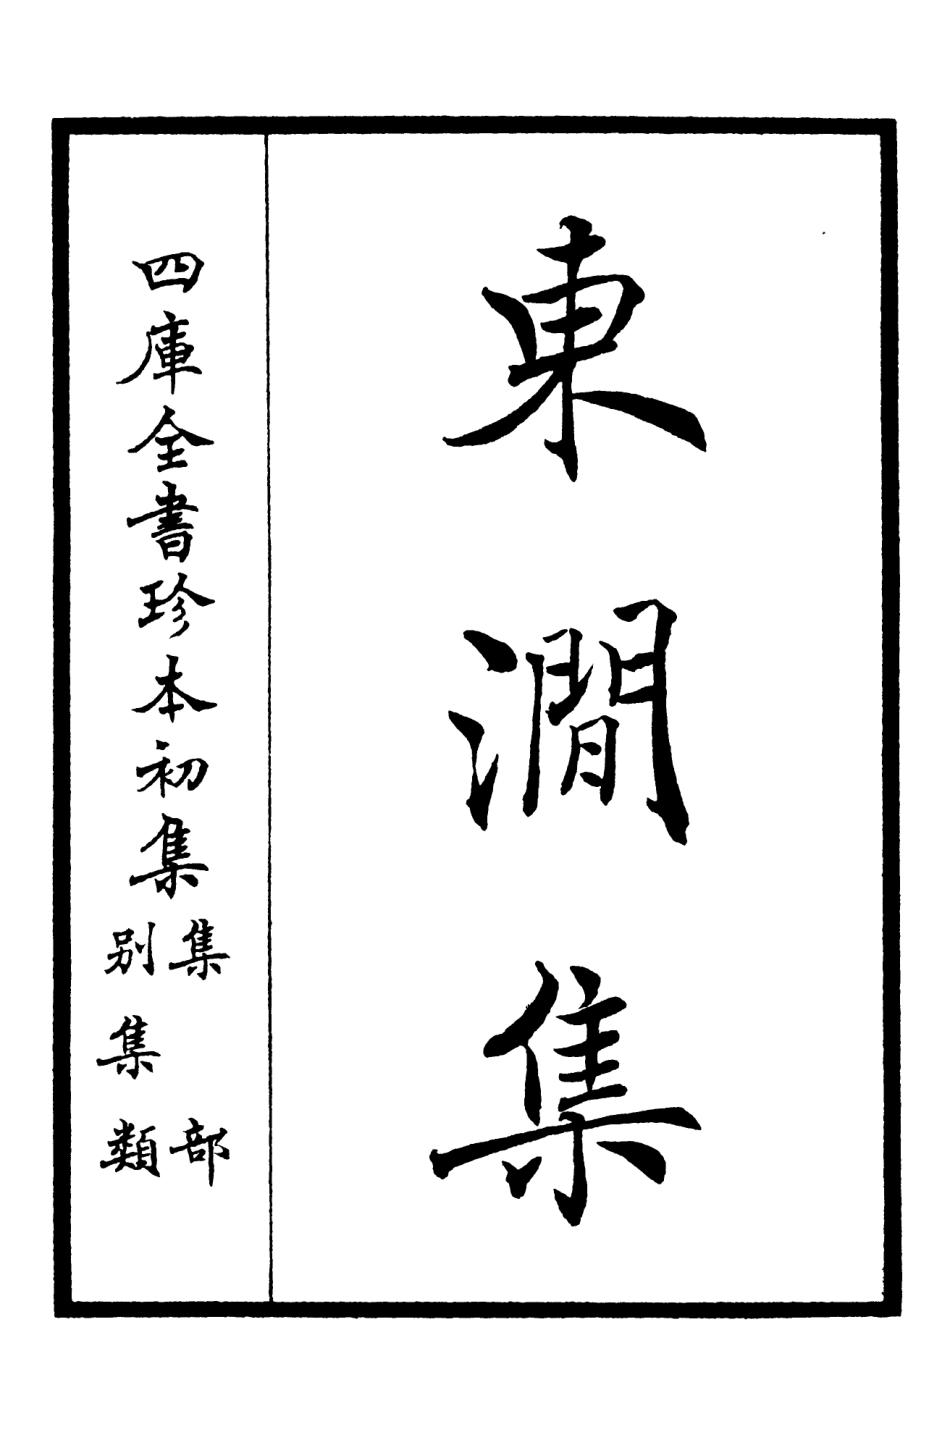 東澗集
四庫全書珍本初集
集部
別集類